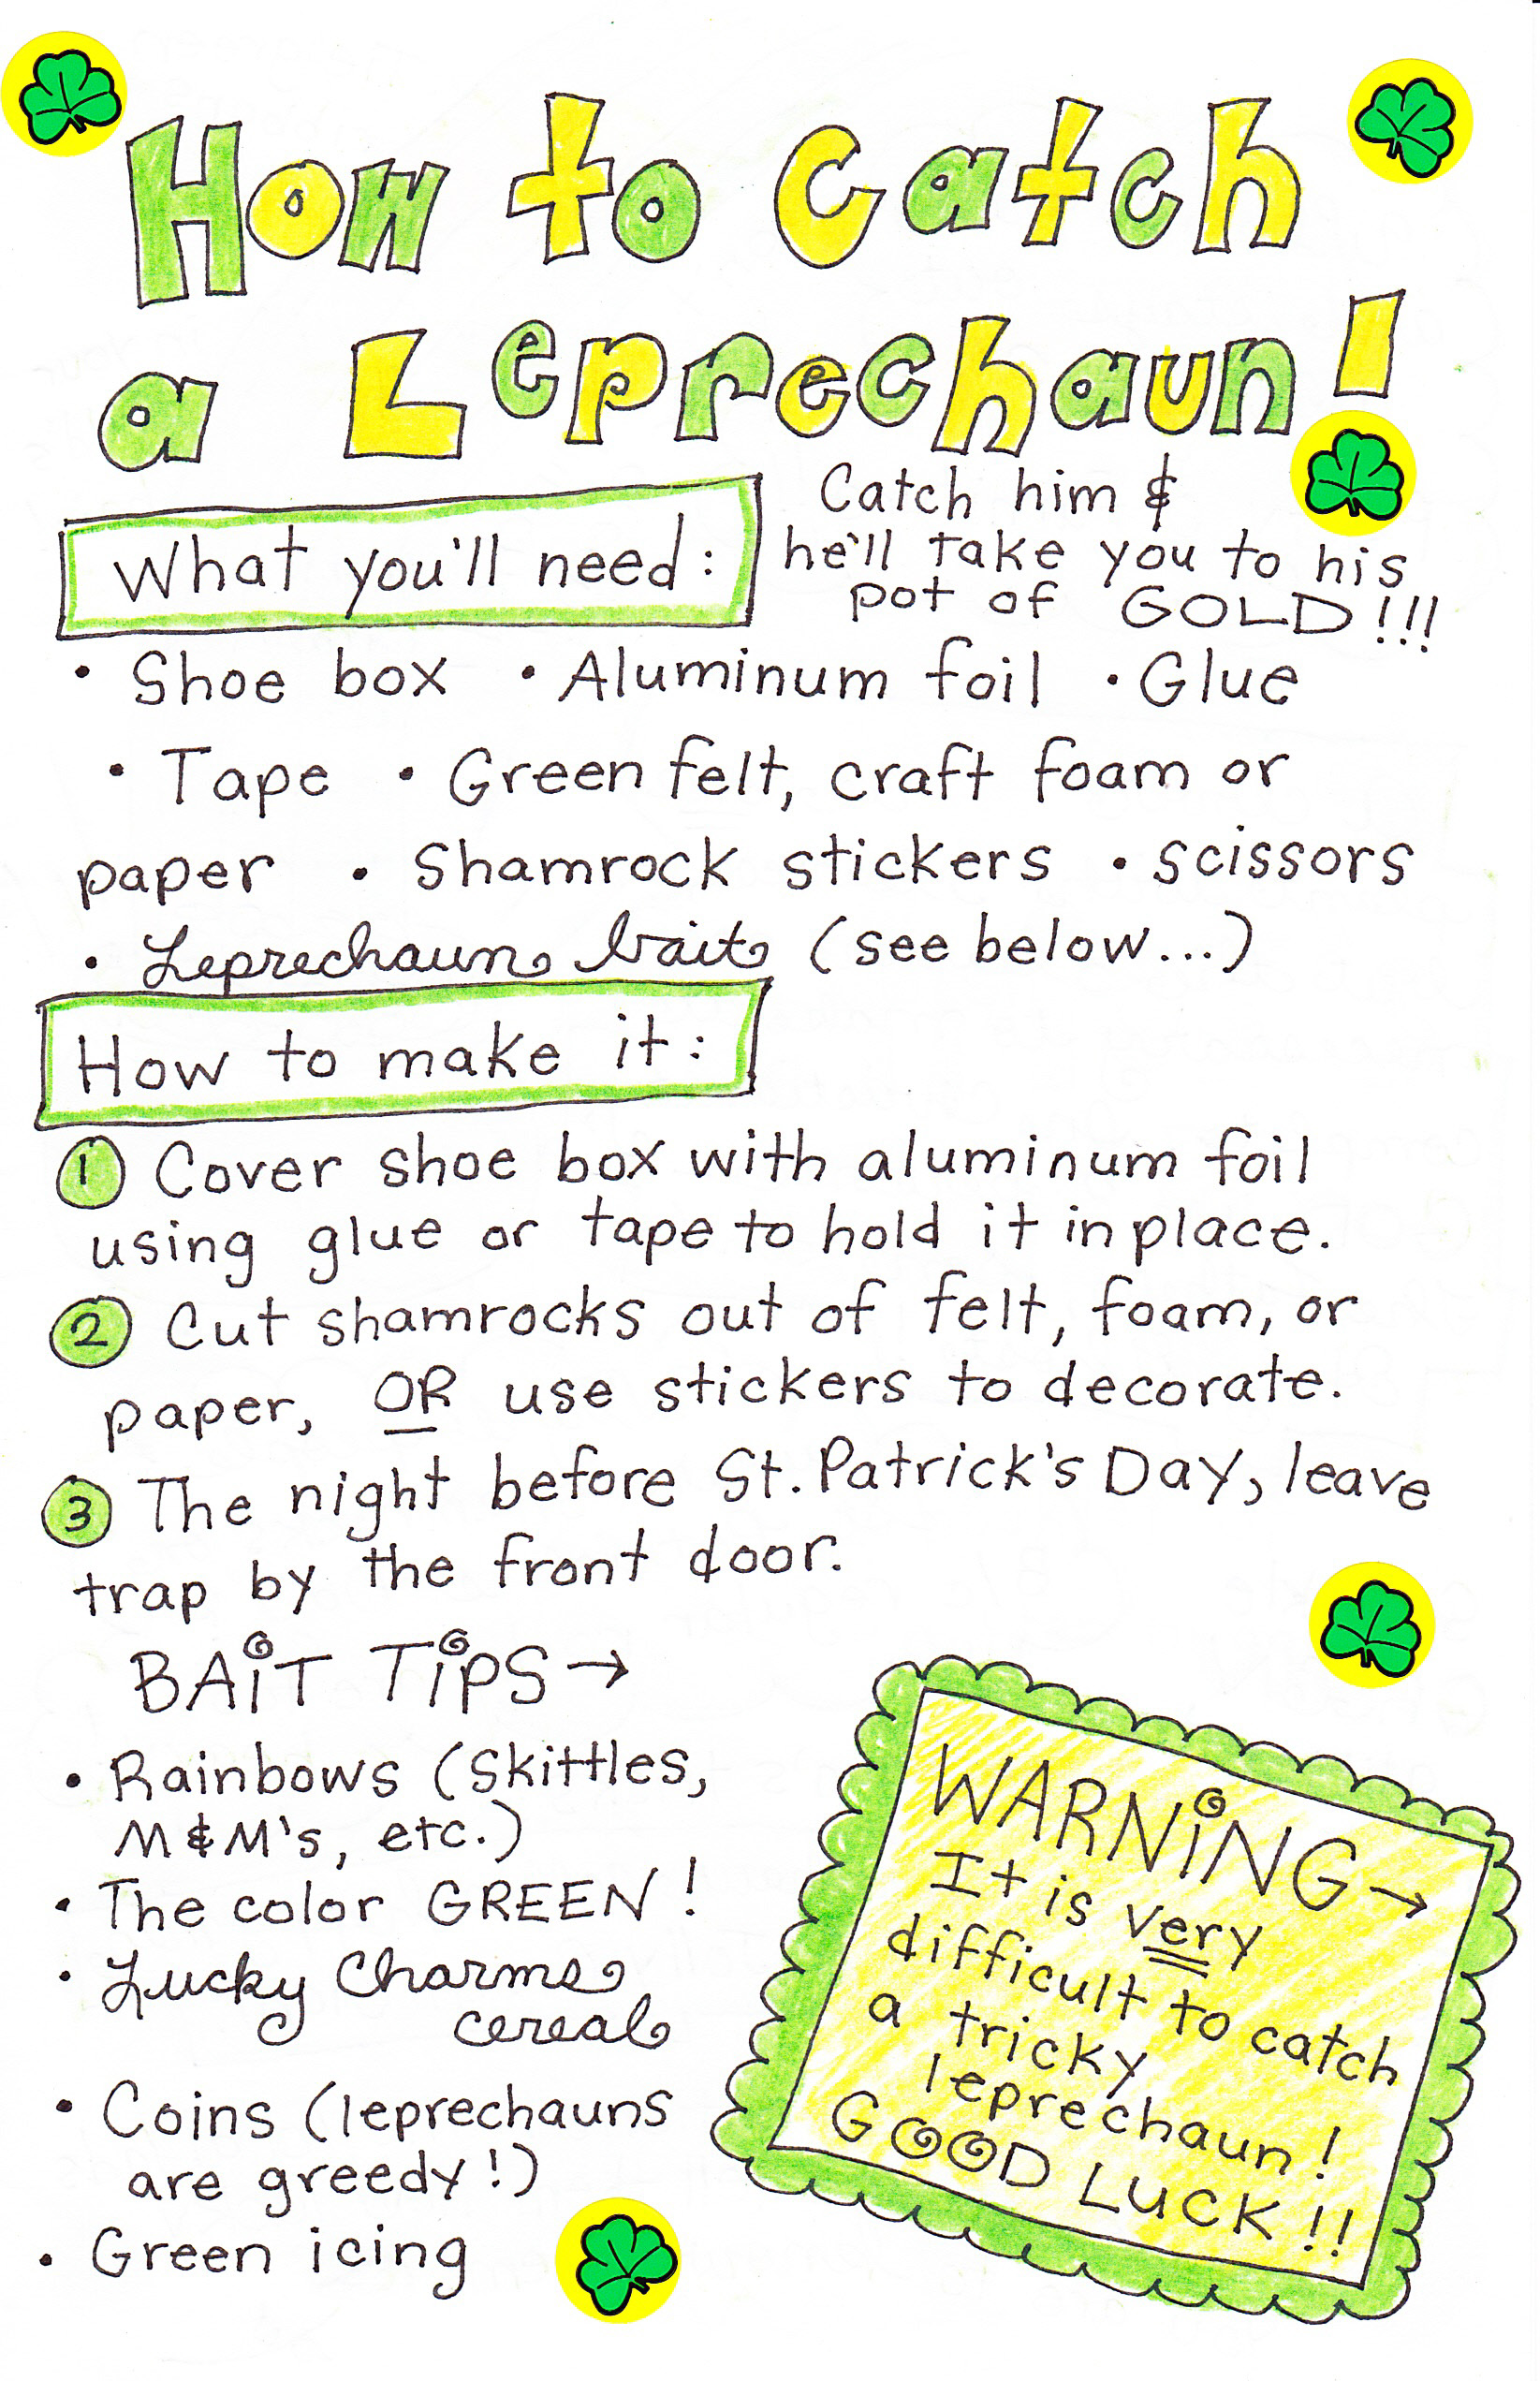 How to Catch
a Leprechaun!
What you'll need:
Catch him &
he'll take you to his
pot of GOLD!!!
• Shoe box • Aluminum foil • Glue
• Tape • Green felt, craft foam or
paper • Shamrock stickers • scissors
• Leprechaun bait (see below...)
How to make it:
1 Cover shoe box with aluminum foil
using glue or tape to hold it in place.
2 Cut shamrocks out of felt, foam, or
paper, OR use stickers to decorate.
3 The night before St. Patrick's Day, leave
trap by the front door.
BAiT TiPS →
• Rainbows (Skittles,
M&M's, etc.)
• The color GREEN!
• Lucky Charms
cereal
• Coins (leprechauns
are greedy!)
• Green icing
WARNiNG →
It is very
difficult to catch
a tricky
leprechaun!
GOOD LUCK!!